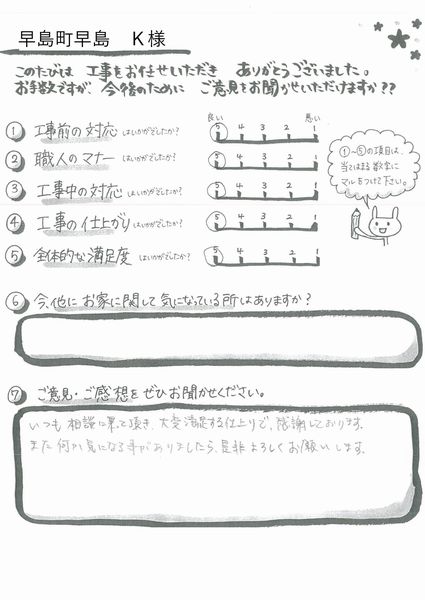 早島町早島 K様
このたびは 工事をお任せいただき ありがとうございました。
お手数ですが 今後のために ご意見をお聞かせいただけますか??
良い 悪い
① 工事前の対応 はいかがでしたか? 5 4 3 2 1
② 職人のマナー はいかがでしたか? 5 4 3 2 1
③ 工事中の対応 はいかがでしたか? 5 4 3 2 1
④ 工事の仕上がり はいかがでしたか? 5 4 3 2 1
⑤ 全体的な満足度 はいかがでしたか? 5 4 3 2 1
①~⑤の項目は、
当てはまる数字に
マルをつけて下さい。
⑥ 今、他に お家に関して 気になっている所 はありますか?
⑦ ご意見・ご感想を ぜひお聞かせください。
いつも 相談に乗って頂き、大変満足する仕上りで、感謝しております。
また 何か気になる事がありましたら、是非よろしくお願いします。